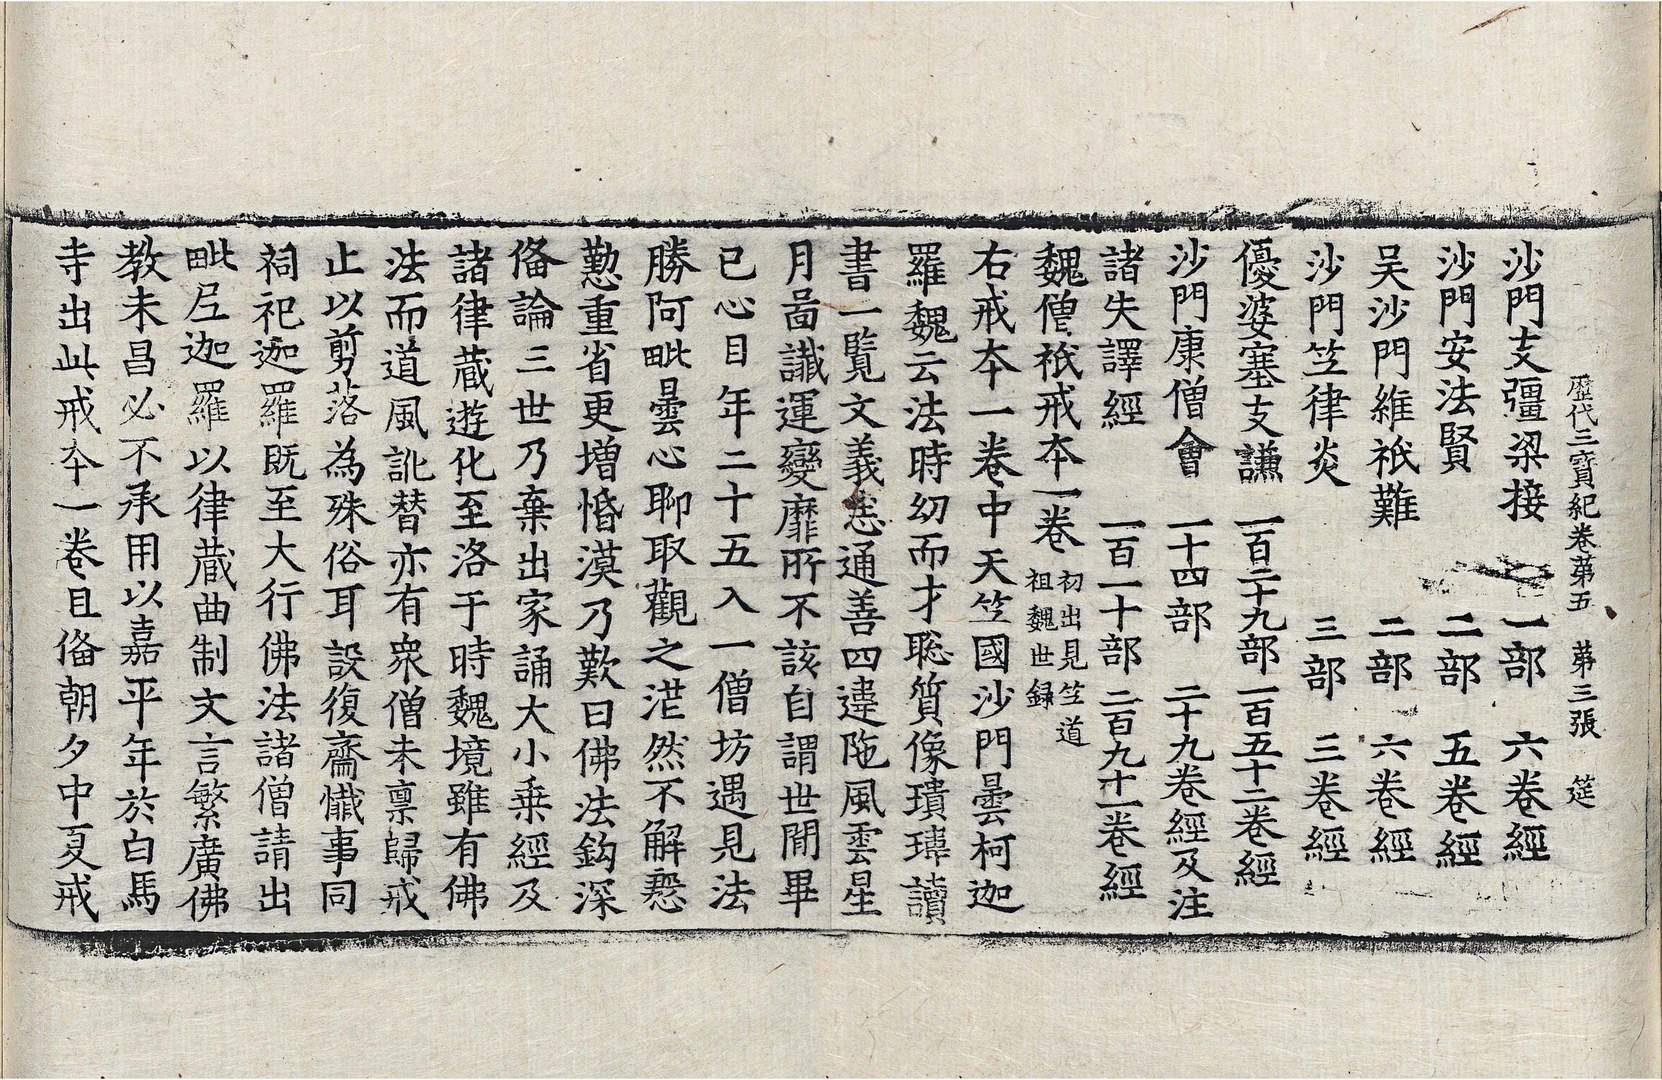 歷代三寶紀卷第五 第三張 筵
沙門支彊梁接 一部 六卷經
沙門安法賢 二部 五卷經
吴沙門維祇難 二部 六卷經
沙門竺律炎 三部 三卷經
優婆塞支謙 一百二十九部 一百五十二卷經
沙門康僧會 一十四部 二十九卷經及注
諸失譯經 一百一十部 二百九十一卷經
魏僧祇戒夲一卷 初出見竺道祖魏世録
右戒夲一卷中天竺國沙門曇柯迦
羅魏云法時幼而才聡質像瓌瑋讀
書一覧文義悉通善四違陁風雲星
月啚讖運變靡所不該自謂世間畢
已心目年二十五入一僧坊遇見法
勝阿毗曇心聊取觀之茫然不解慇
懃重省更增惛漠乃歎曰佛法鈎深
俻論三世乃棄出家誦大小乗經及
諸律蔵遊化至洛于時魏境雖有佛
法而道風訛替亦有衆僧未禀歸戒
止以剪落為殊俗耳設復齋懺事同
祠祀迦羅既至大行佛法諸僧請出
毗尼迦羅以律蔵曲制文言繁廣佛
教未昌必不承用以嘉平年於白馬
寺出此戒夲一卷且俻朝夕中夏戒